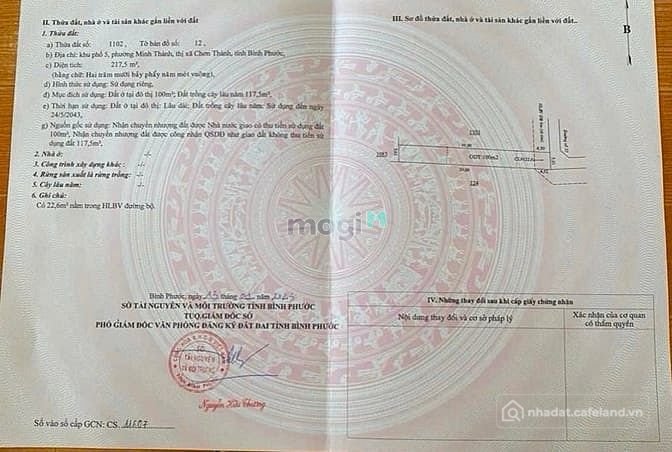 II. Thửa đất, nhà ở và tài sản khác gắn liền với đất
1. Thửa đất:
a) Thửa đất số: 1102 , Tờ bản đồ số: 12 ,
b) Địa chỉ: khu phố 5, phường Minh Thành, thị xã Chơn Thành, tỉnh Bình Phước,
c) Diện tích: 217,5 m²,
(bằng chữ: Hai trăm mười bảy phẩy năm mét vuông),
d) Hình thức sử dụng: Sử dụng riêng,
đ) Mục đích sử dụng: Đất ở tại đô thị 100m²; Đất trồng cây lâu năm 117,5m²,
e) Thời hạn sử dụng: Đất ở tại đô thị: Lâu dài; Đất trồng cây lâu năm: Sử dụng đến ngày
24/5/2043,
g) Nguồn gốc sử dụng: Nhận chuyển nhượng đất được Nhà nước giao có thu tiền sử dụng đất
100m², Nhận chuyển nhượng đất được công nhận QSDĐ như giao đất không thu tiền sử
dụng đất 117,5m².
2. Nhà ở: -/-
3. Công trình xây dựng khác: -/-
4. Rừng sản xuất là rừng trồng: -/-
5. Cây lâu năm: -/-
6. Ghi chú:
Có 22,6m² nằm trong HLBV đường bộ.
Bình Phước, ngày tháng năm
SỞ TÀI NGUYÊN VÀ MÔI TRƯỜNG TỈNH BÌNH PHƯỚC
TUQ.GIÁM ĐỐC SỞ
PHÓ GIÁM ĐỐC VĂN PHÒNG ĐĂNG KÝ ĐẤT ĐAI TỈNH BÌNH PHƯỚC
SỞ
TÀI NGUYÊN
VÀ MÔI TRƯỜNG
Nguyễn Hữu
Số vào sổ cấp GCN: CS.
III. Sơ đồ thửa đất, nhà ở và tài sản khác gắn liền với đất.
B
ODT 100m2
IV. Những thay đổi sau khi cấp giấy chứng nhận
Nội dung thay đổi và cơ sở pháp lý
Xác nhận của cơ quan
có thẩm quyền
mogi
nhadat.cafeland.vn